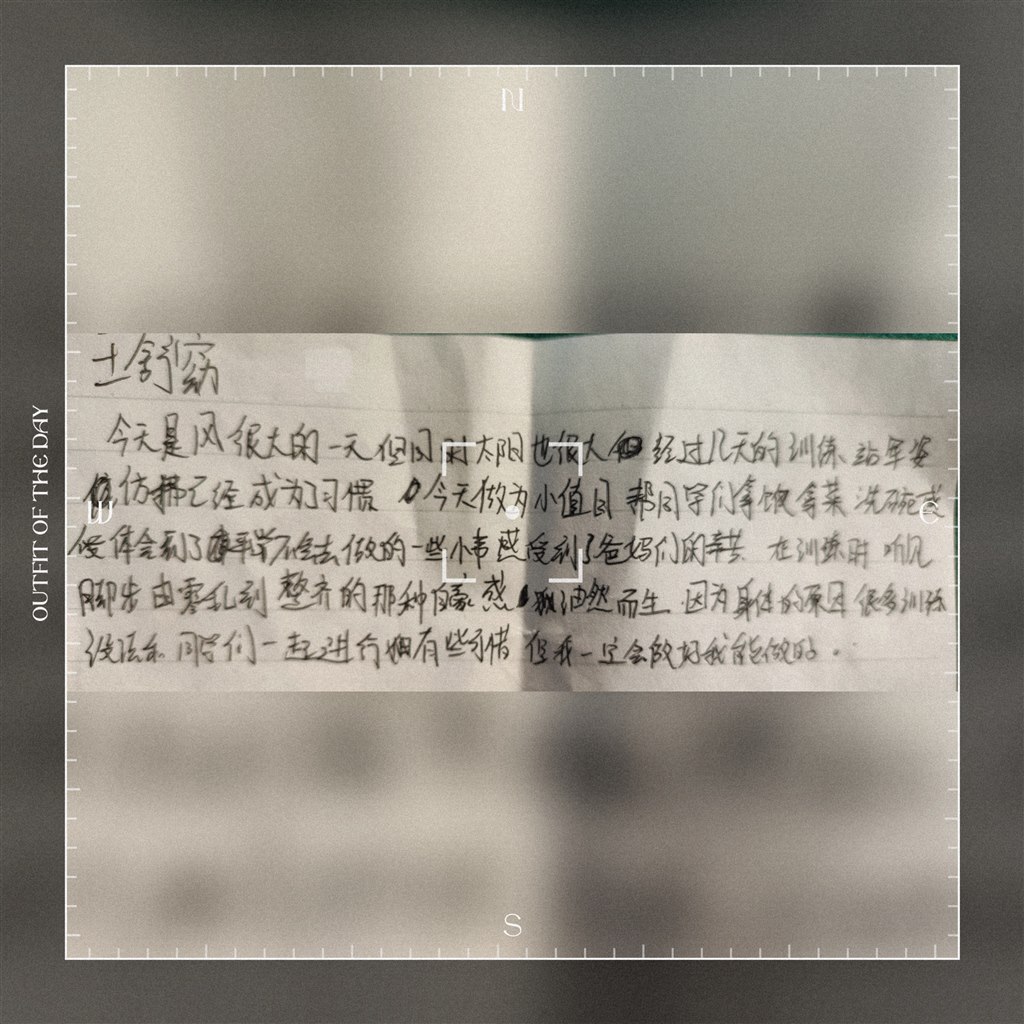 N
王舒窈
今天是风很大的一天 但同时太阳也很大 经过几天的训练 站军姿
仿拂已经成为了习惯 今天做为小值日 帮同学们拿饭 拿菜 洗碗 我
体会到了 平常不会去做的一些小事 感受到了爸妈们的辛苦 在训练时 听见
脚步由零乱到整齐的那种自豪感 油然而生 因为身体的原因 很多训练
没法和同学们一起进行 有些可惜 但我一定会做好我能做的。
W
E
S
OUTFIT OF THE DAY